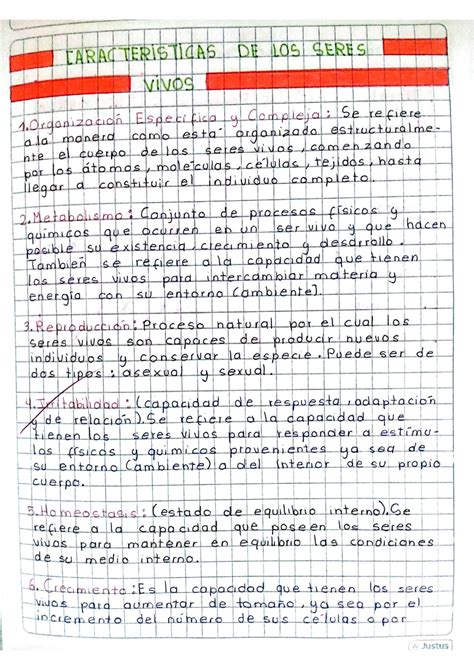 CARACTERISTICAS DE LOS SERES
VIVOS
1.Organización Especifica y Compleja: Se refiere
a la manera como esta organizado estructuralme-
nte el cuerpo de los seres vivos, comenzando
por los átomos, moleculas, celulas, tejidos, hasta
llegar a constituir el individuo completo.
2.Metabolismo: Conjunto de procesos físicos y
quimicos que ocurren en un ser vivo y que hacen
posible su existencia, crecimiento y desarrollo.
También se refiere a la capacidad que tienen
los seres vivos para intercambiar materia y
energía con su entorno (ambiente).
3.Reproducción: Proceso natural por el cual los
seres vivos son capaces de producir nuevos
individuos y conservar la especie. Puede ser de
dos tipos: asexual y sexual.
4.Irritabilidad: (capacidad de respuesta, adaptación
y de relación). Se refiere a la capacidad que
tienen los seres vivos para responder a estimu-
los físicos y quimicos provenientes ya sea de
su entorno (ambiente) o del interior de su propio
cuerpo.
5.Homeostasis: (estado de equilibrio interno). Se
refiere a la capacidad que poseen los seres
vivos para mantener en equilibrio las condiciones
de su medio interno.
6. Crecimiento: Es la capacidad que tienen los seres
vivos para aumentar de tamaño, ya sea por el
incremento del número de sus células o por
Justus